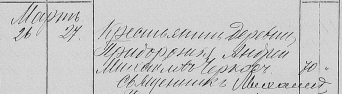 Мартъ
26 27. Крестьянинъ деревни
Придорожья Андрей
Михайловъ 70 "
Священникъ Михаилъ